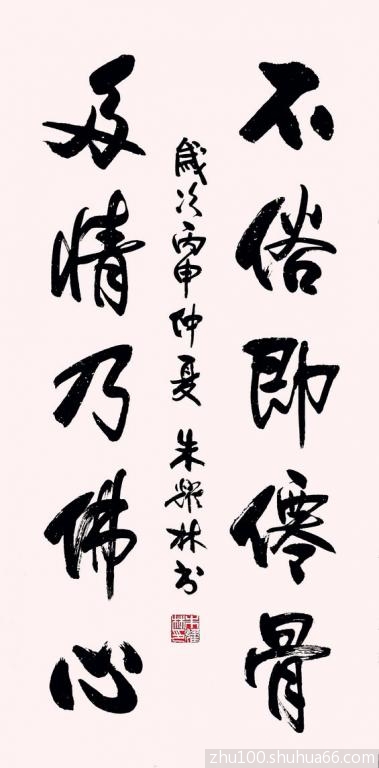 不俗即僊骨
多情乃佛心
歲次丙申仲夏 朱林书
zhu100.shuhua66.com